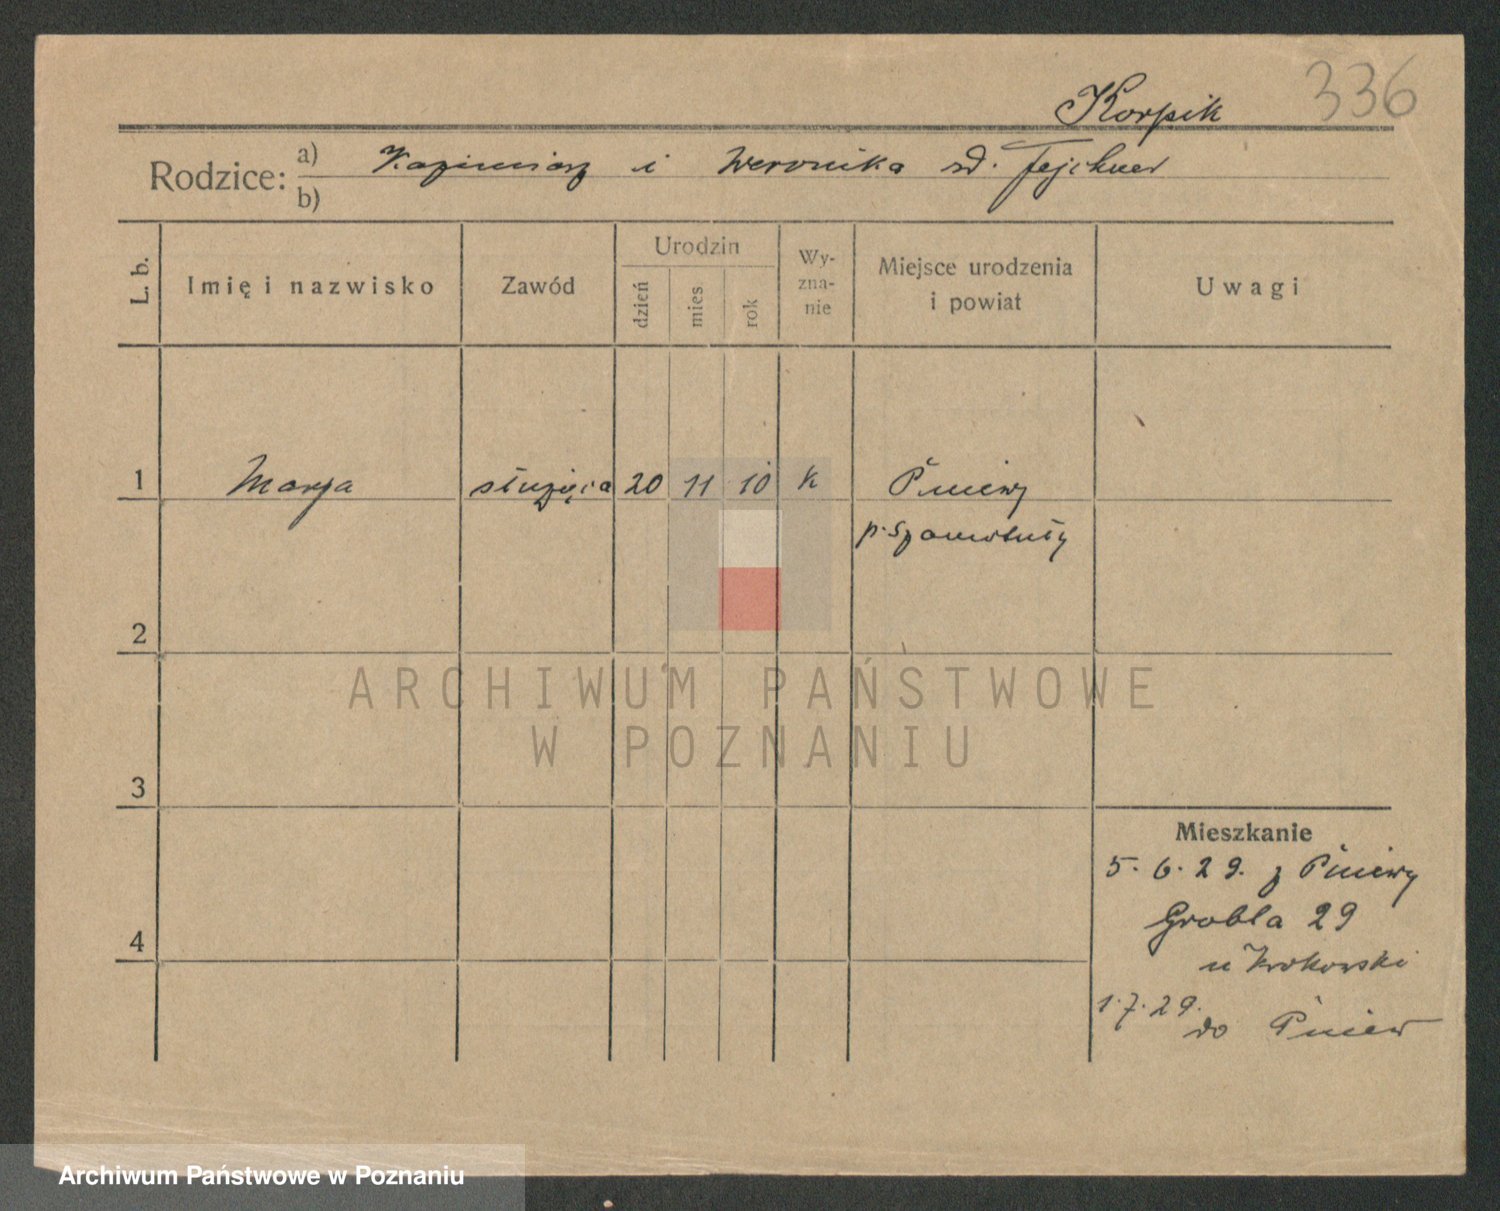 Korpik 336
Rodzice: a) Kazimierz i Weronika zd. Tejchner
b)
L. b. Imię i nazwisko Zawód Urodzin dzień mies rok Wy-zna-nie Miejsce urodzenia i powiat Uwagi
1 Marja służąca 20 11 10 k Pniewy
p. Szamotuły
2
ARCHIWUM PAŃSTWOWE
W POZNANIU
3
Mieszkanie
5. 6. 29. z Pniewy
Grobla 29
4
u Krokowski
1. 7. 29.
do Pniew
Archiwum Państwowe w Poznaniu